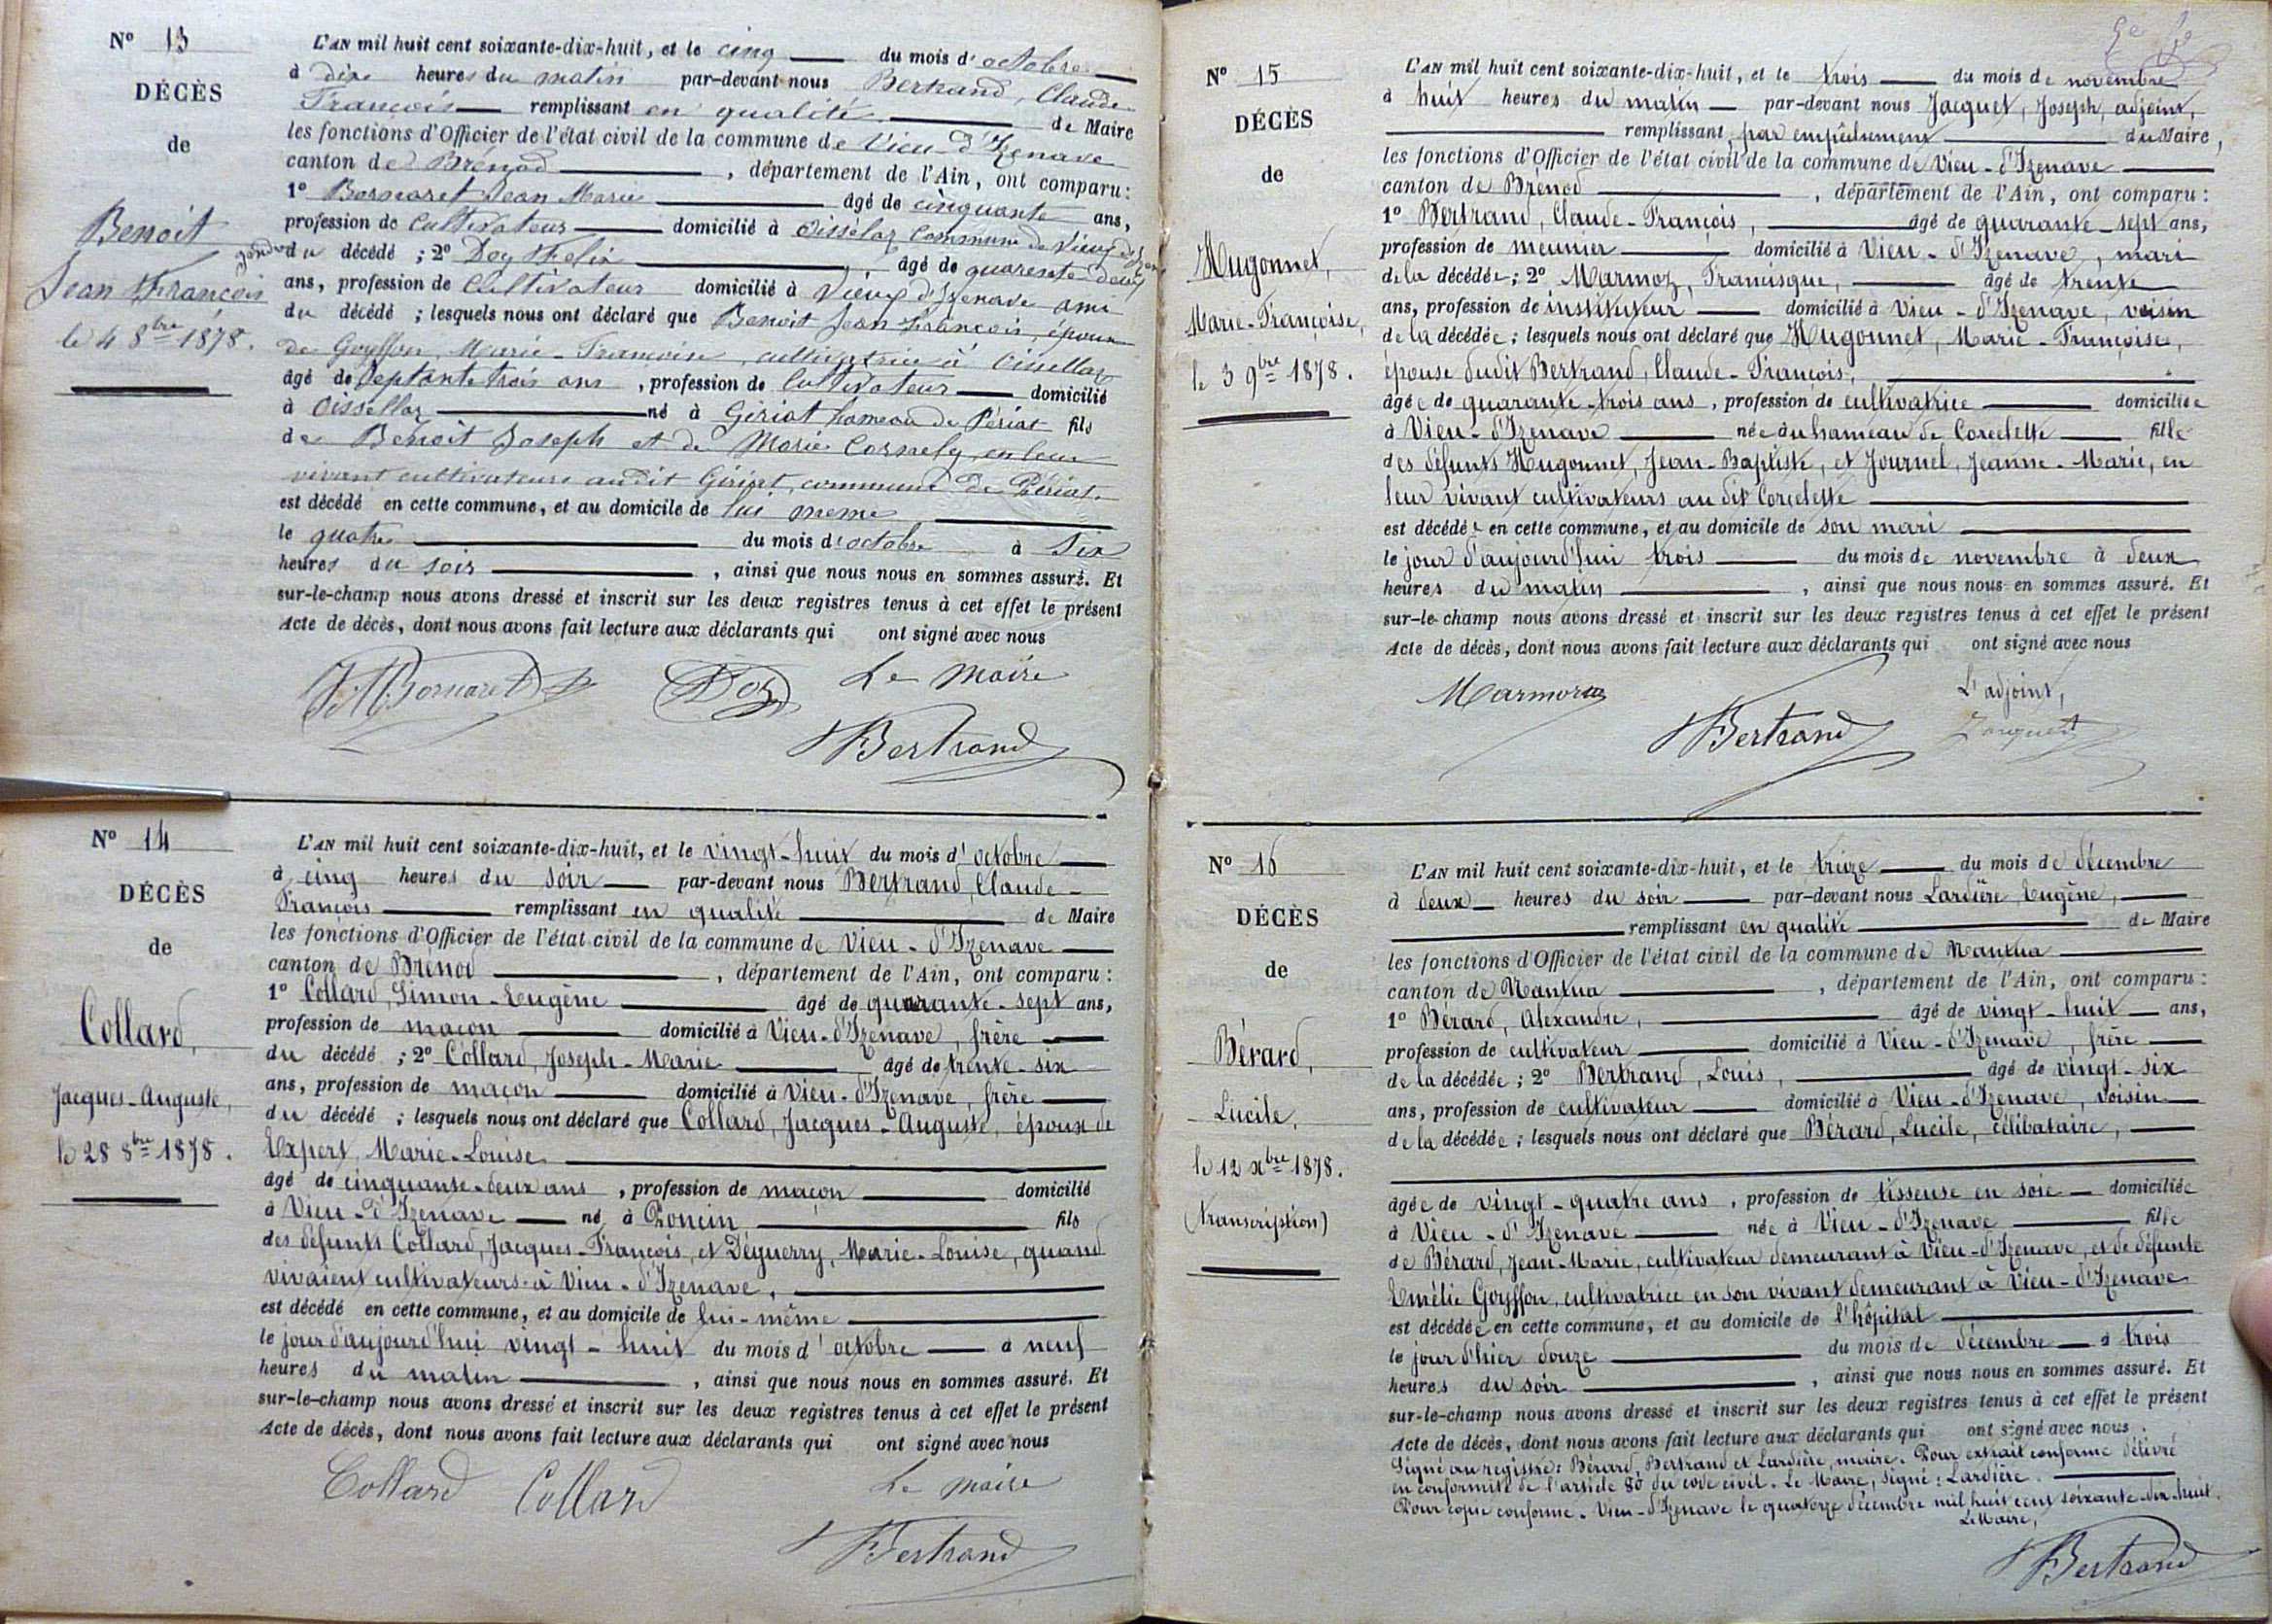 N° 13
DÉCÈS
de
Benoit
Jean François
le 4 8bre 1878.
L'AN mil huit cent soixante-dix-huit, et le cinq du mois d'octobre
à dix heures du matin par-devant nous Bertrand, Claude
François remplissant en qualité de Maire
les fonctions d'Officier de l'état civil de la commune de Vieu d'Izenave
canton de Brénod, département de l'Ain, ont comparu:
1° Bornaret Jean Marie âgé de cinquante ans,
profession de Cultivateur domicilié à Oisselaz Commune de Vieux d'Izen
gendre du décédé ; 2° Doy Felix, âgé de quarente deux
ans, profession de Cultivateur domicilié à Vieux d'Izenave ami
du décédé ; lesquels nous ont déclaré que Benoit Jean François, époux
de Goyffon, Marie-Francoise, cultivatrice à Oisellaz
âgé de Septante trois ans, profession de Cultivateur domicilié
à Oissellaz né à Giriat hameau de Périat fils
de Benoit Joseph et de Marie Cornely en leur
vivant cultivateurs audit Giriat, commune de Périat.
est décédé en cette commune, et au domicile de lui meme
le quatre du mois d'octobre à Six
heures du soir, ainsi que nous nous en sommes assuré. Et
sur-le-champ nous avons dressé et inscrit sur les deux registres tenus à cet effet le présent
Acte de décès, dont nous avons fait lecture aux déclarants qui ont signé avec nous
JM Bornaret Doy Le Maire
Bertrand
N° 14
DÉCÈS
de
Collard,
Jacques-Auguste,
le 28 8bre 1878.
L'AN mil huit cent soixante-dix-huit, et le vingt-huit du mois d'octobre
à cinq heures du soir par-devant nous Bertrand, Claude-
François remplissant en qualité de Maire
les fonctions d'Officier de l'état civil de la commune de Vieu-d'Izenave
canton de Brénod, département de l'Ain, ont comparu :
1° Collard, Simon-Eugène âgé de quarante-sept ans,
profession de maçon domicilié à Vieu-d'Izenave, frère
du décédé ; 2° Collard, Joseph-Marie âgé de trente-six
ans, profession de maçon domicilié à Vieu-d'Izenave, frère
du décédé ; lesquels nous ont déclaré que Collard, Jacques-Auguste, époux de
Expert, Marie-Louise
âgé de cinquante-deux ans, profession de maçon domicilié
à Vieu-d'Izenave né à Poncin fils
des défunts Collard, Jacques-François, et Déguerry, Marie-Louise, quand
vivaient cultivateurs à Vieu-d'Izenave,
est décédé en cette commune, et au domicile de lui-même
le jour d'aujourd'hui vingt-huit du mois d'octobre à neuf
heures du matin, ainsi que nous nous en sommes assuré. Et
sur-le-champ nous avons dressé et inscrit sur les deux registres tenus à cet effet le présent
Acte de décès, dont nous avons fait lecture aux déclarants qui ont signé avec nous
Collard Collard Le Maire
Bertrand
N° 15
DÉCÈS
de
Hugonnet,
Marie-Françoise,
le 3 9bre 1878.
L'AN mil huit cent soixante-dix-huit, et le trois du mois de novembre
à huit heures du matin par-devant nous Jacquet, Joseph, adjoint,
remplissant, par empêchement du Maire,
les fonctions d'Officier de l'état civil de la commune de Vieu-d'Izenave
canton de Brénod, département de l'Ain, ont comparu :
1° Bertrand, Claude-François, âgé de quarante-sept ans,
profession de meunier domicilié à Vieu-d'Izenave, mari
de la décédée ; 2° Marmoz, Francisque, âgé de trente
ans, profession de instituteur domicilié à Vieu-d'Izenave, voisin
de la décédée ; lesquels nous ont déclaré que Hugonnet, Marie-Françoise,
épouse dudit Bertrand, Claude-François,
âgée de quarante-trois ans, profession de cultivatrice domiciliée
à Vieu-d'Izenave née au hameau de Corcelette fille
des défunts Hugonnet, Jean-Baptiste, et Journel, Jeanne-Marie, en
leur vivant cultivateurs au dit Corcelette
est décédée en cette commune, et au domicile de son mari
le jour d'aujourd'hui trois du mois de novembre à deux
heures du matin, ainsi que nous nous en sommes assuré. Et
sur-le-champ nous avons dressé et inscrit sur les deux registres tenus à cet effet le présent
Acte de décès, dont nous avons fait lecture aux déclarants qui ont signé avec nous
Marmoz L'adjoint,
Bertrand Jacquet
N° 16
DÉCÈS
de
Bérard,
Lucile,
le 12 xbre 1878.
(transcription)
L'AN mil huit cent soixante-dix-huit, et le treize du mois de décembre
à deux heures du soir par-devant nous Lardière Eugène,
remplissant en qualité de Maire
les fonctions d'Officier de l'état civil de la commune de Nantua
canton de Nantua, département de l'Ain, ont comparu :
1° Bérard, Alexandre, âgé de vingt-huit ans,
profession de cultivateur domicilié à Vieu-d'Izenave, frère
de la décédée ; 2° Bertrand, Louis, âgé de vingt-six
ans, profession de cultivateur domicilié à Vieu-d'Izenave, voisin
de la décédée ; lesquels nous ont déclaré que Bérard, Lucile, célibataire,
âgée de vingt-quatre ans, profession de tisseuse en soie domiciliée
à Vieu-d'Izenave née à Vieu-d'Izenave fille
de Bérard, Jean-Marie, cultivateur demeurant à Vieu-d'Izenave, et de défunte
Emélie Goyffon, cultivatrice en son vivant demeurant à Vieu-d'Izenave
est décédée en cette commune, et au domicile de l'hôpital
le jour d'hier douze du mois de décembre à trois
heures du soir, ainsi que nous nous en sommes assuré. Et
sur-le-champ nous avons dressé et inscrit sur les deux registres tenus à cet effet le présent
Acte de décès, dont nous avons fait lecture aux déclarants qui ont signé avec nous.
Signé au registre : Bérard, Bertrand et Lardière, maire. Pour extrait conforme délivré
en conformité de l'article 80 du code civil. Le Maire, signé : Lardière.
Pour copie conforme. Vieu-d'Izenave le quatorze décembre mil huit cent soixante-dix-huit.
Le Maire,
Bertrand